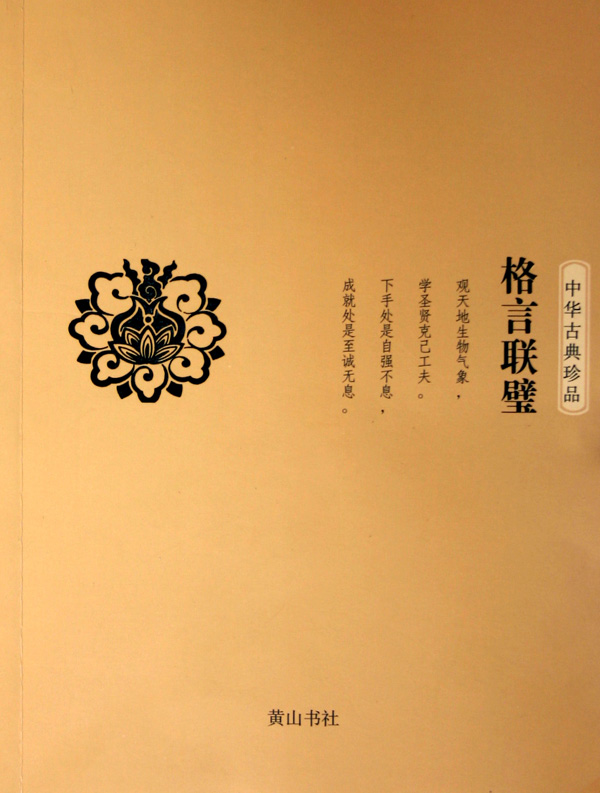 中华古典珍品
格言联璧
观天地生物气象，
学圣贤克己工夫。
下手处是自强不息，
成就处是至诚无息。
黄山书社